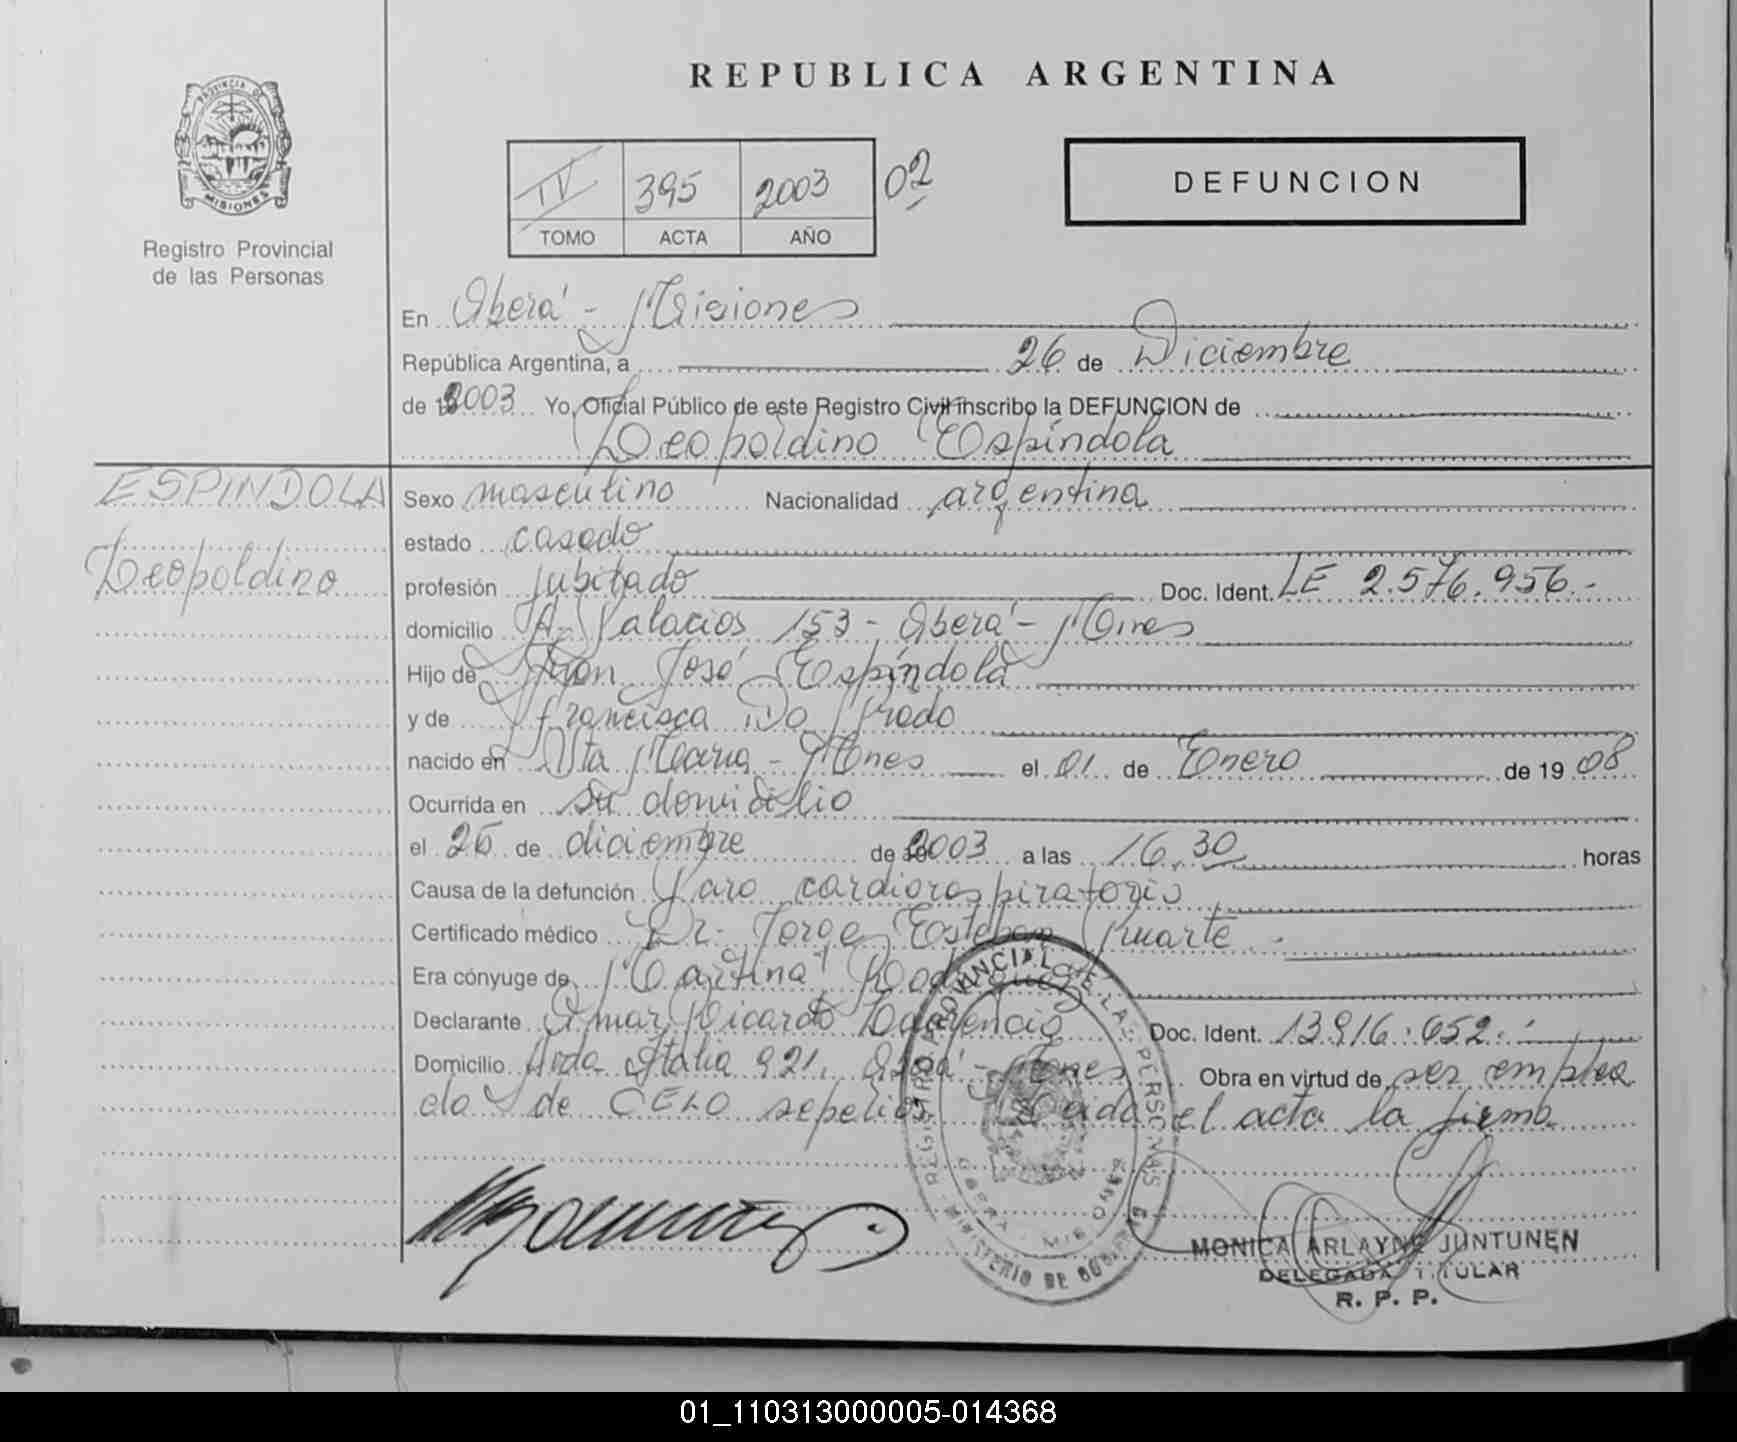 REPUBLICA ARGENTINA
PROVINCIA DE
MISIONES
Registro Provincial
de las Personas
IV 395 2003 02
TOMO ACTA AÑO
DEFUNCION
En Oberá - Misiones
República Argentina, a 26 de Diciembre
de 2003 Yo, Oficial Público de este Registro Civil inscribo la DEFUNCION de
Leopoldino Espíndola
ESPINDOLA
Leopoldino
Sexo masculino Nacionalidad argentina
estado casado
profesión jubilado Doc. Ident. LE 2.576.956.-
domicilio A. Palacios 153 - Oberá - Mnes
Hijo de Juan José Espíndola
y de Francisca Do Prado
nacido en Sta María - Mnes el 01 de Enero de 1908
Ocurrida en su domicilio
el 25 de diciembre de 2003 a las 16,30 horas
Causa de la defunción Paro cardiorespiratorio
Certificado médico Dr. Jorge Esteban
Era cónyuge de Martina Rodriguez
Declarante Omar Ricardo Doc. Ident. 13.916.052.-
Domicilio Avda Italia 921, Oberá - Mnes Obra en virtud de ser emplea
do de CELO sepelios Leida el acta la firma
REGISTRO PROVINCIAL DE LAS PERSONAS
MINISTERIO DE GOBIERNO
MONICA ARLAYNE JUNTUNEN
DELEGADA TITULAR
R. P. P.
01_110313000005-014368